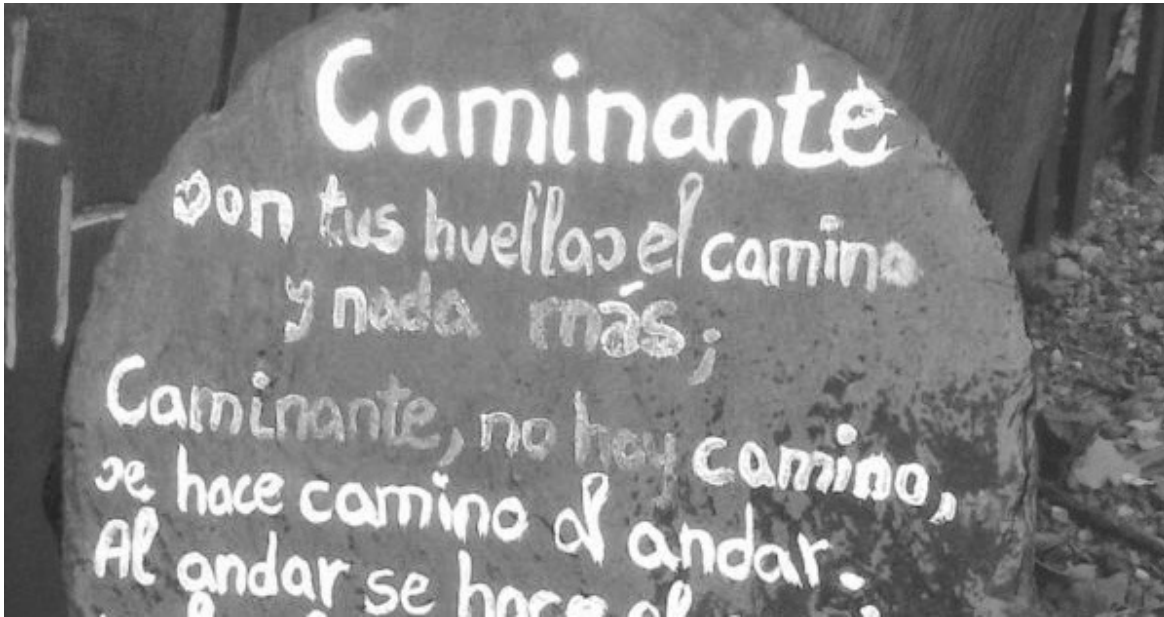 Caminante
son tus huellas el camino
y nada más;
Caminante, no hay camino,
se hace camino al andar.
Al andar se hace el